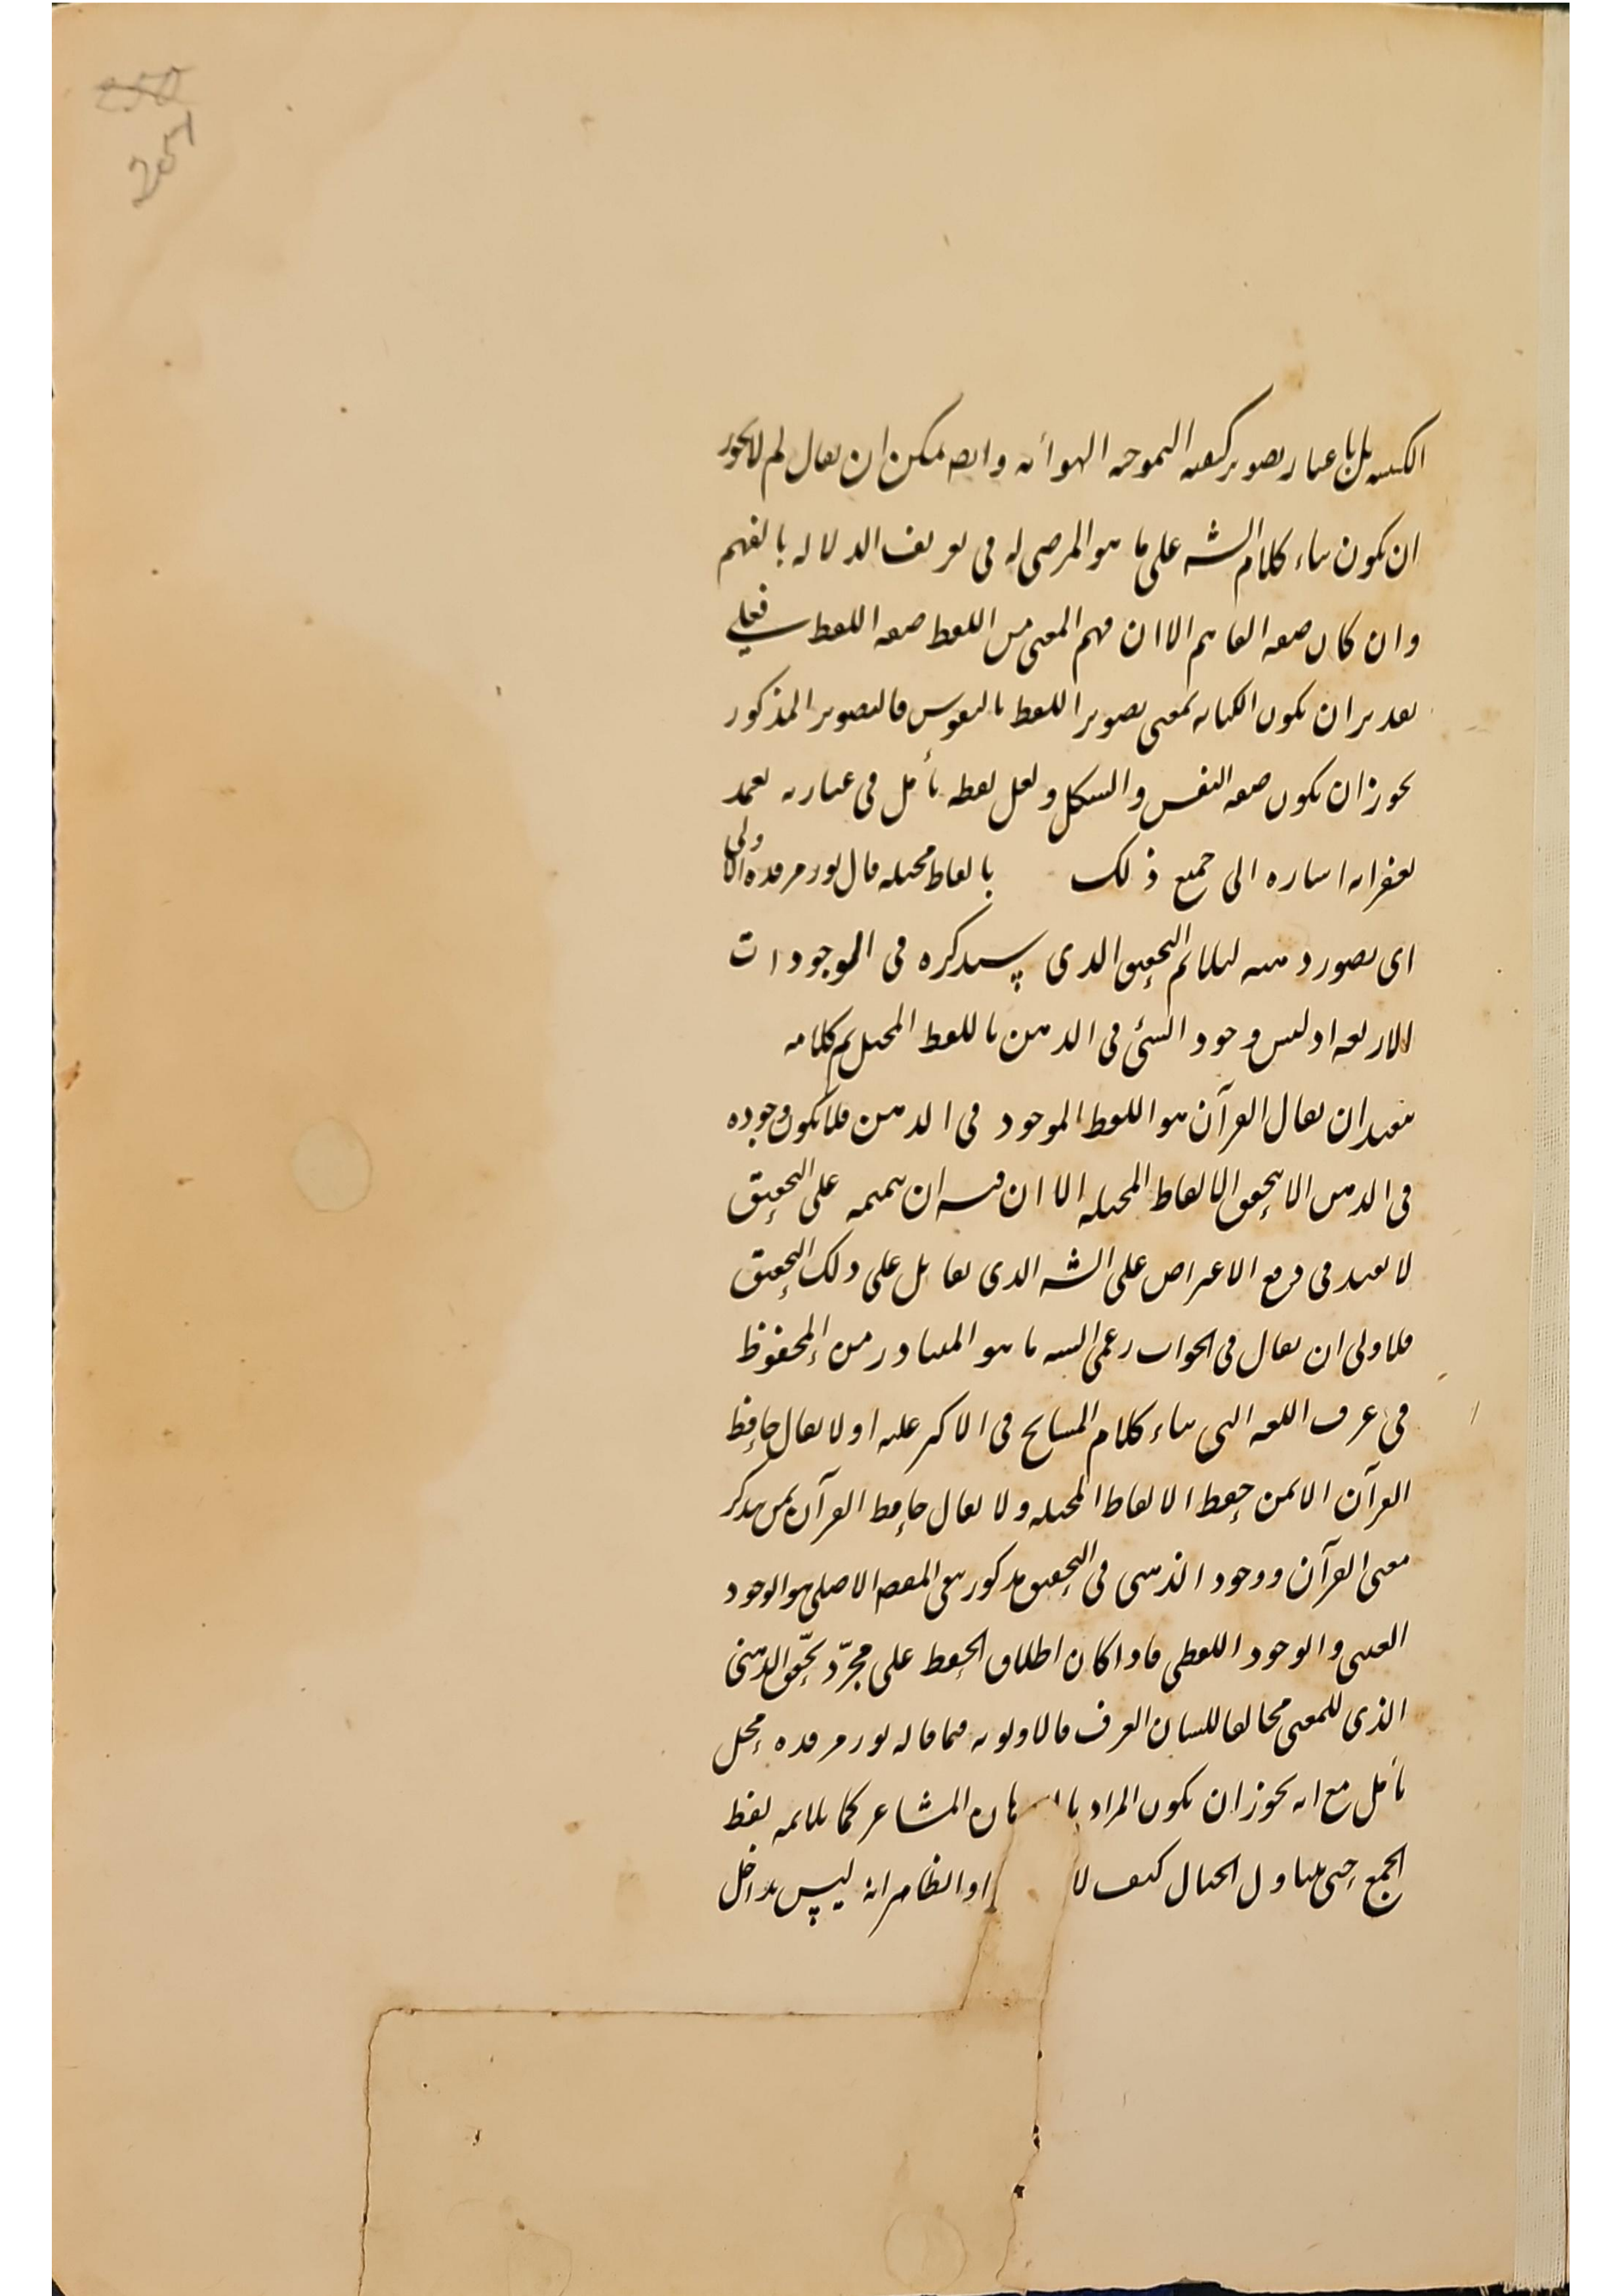 250
251
الكيفية بل باعتبار تصوير كيفية التموجية الهوائية وايضا يمكن ان يقال لم لا يجوز
ان يكون بناء كلام الشه على ما هو المرضي له في تعريف الدلالة بالفهم
وان كان صفة الفاهم الا ان فهم المعنى من اللفظ صفة اللفظ فعلى
تقدير ان يكون الكتابة بمعنى تصوير اللفظ بالنقوش فالتصوير المذكور
يجوز ان يكون صفة النقش والشكل ولعل لفظة تأمل في عبارته تغمد
بغفرانه اشارة الى جميع ذلك بالفاظ مخيلة قال نور مرقده الاولى
اى بصور ذهنية ليلائم التحقيق الذى سيذكره في الموجودات
الاربعة اذ ليس وجود الشئ في الذهن باللفظ المخيل تم كلامه
يفيد ان يقال القرآن هو اللفظ الموجود في الذهن فلا يكون وجوده
في الذهن الا بتحقق الالفاظ المخيلة الا ان فيه ان تتميمه على التحقيق
لا يفيد في دفع الاعتراض على الشه الذى يقابل على ذلك التحقيق
فلاولى ان يقال في الجواب رعى الشه ما هو المتبادر من المحفوظ
في عرف اللغة التى بناء كلام المشايخ في الاكثر عليه اولا يقال حافظ
القرآن الا لمن حفظ الالفاظ المخيلة ولا يقال حافظ القرآن لمن يذكر
معنى القرآن ووجود الذهنى في التحقيق مذكور بتبعى المقصد الاصلى هو الوجود
العينى والوجود اللفظى فاذا كان اطلاق الحفظ على مجرّد تحقّق الذهنى
الذى للمعنى مخالفا للسان العرف فالاولوية فيما قاله نور مرقده محل
تأمل مع انه يجوز ان يكون المراد المشاعر كما يلائمه لفظ
الجمع حتى يتناول الخيال كيف لا او الظاهر انه ليس بداخل